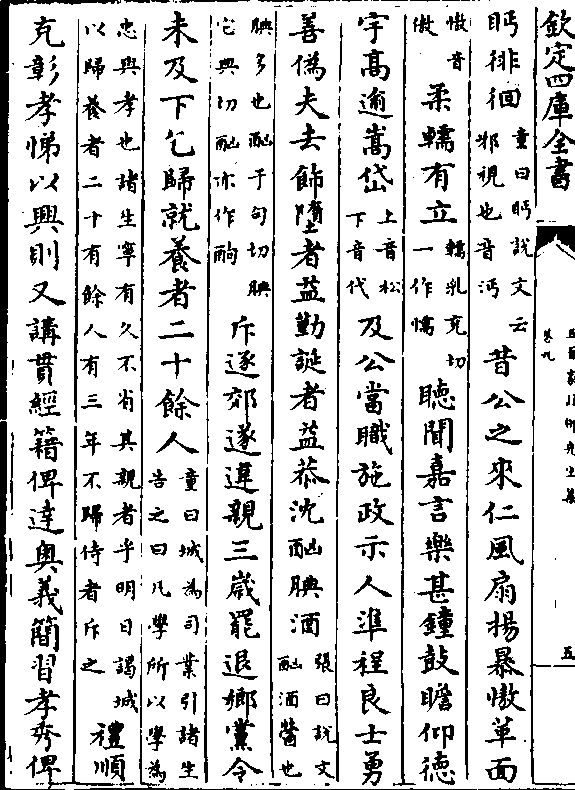 欽定四庫全書
卷九
五
眄徘徊童曰眄說文云邪視也音沔昔公之來仁風扇揚暴慠革面
慠音傲柔輭有立輭乳兗切一作懦聽聞嘉言樂甚鐘鼓瞻仰德
宇高逾嵩岱上音松下音代及公當職施政示人準程良士勇
善偽夫去飾墮者益勤誕者益恭沈酗腆酒張曰說文酗酒醟也
腆多也酗于句切腆它典切酗亦作酗斥逐郊遂違親三歲罷退鄉黨令
未及下乞歸就養者二十餘人童曰城為司業引諸生告之曰凡學所以學為
忠與孝也諸生寧有久不省其親者乎明日謁城以歸養者二十有餘人有三年不歸侍者斥之禮順
克彰孝悌以興則又講貫經籍俾達奧義簡習孝秀俾